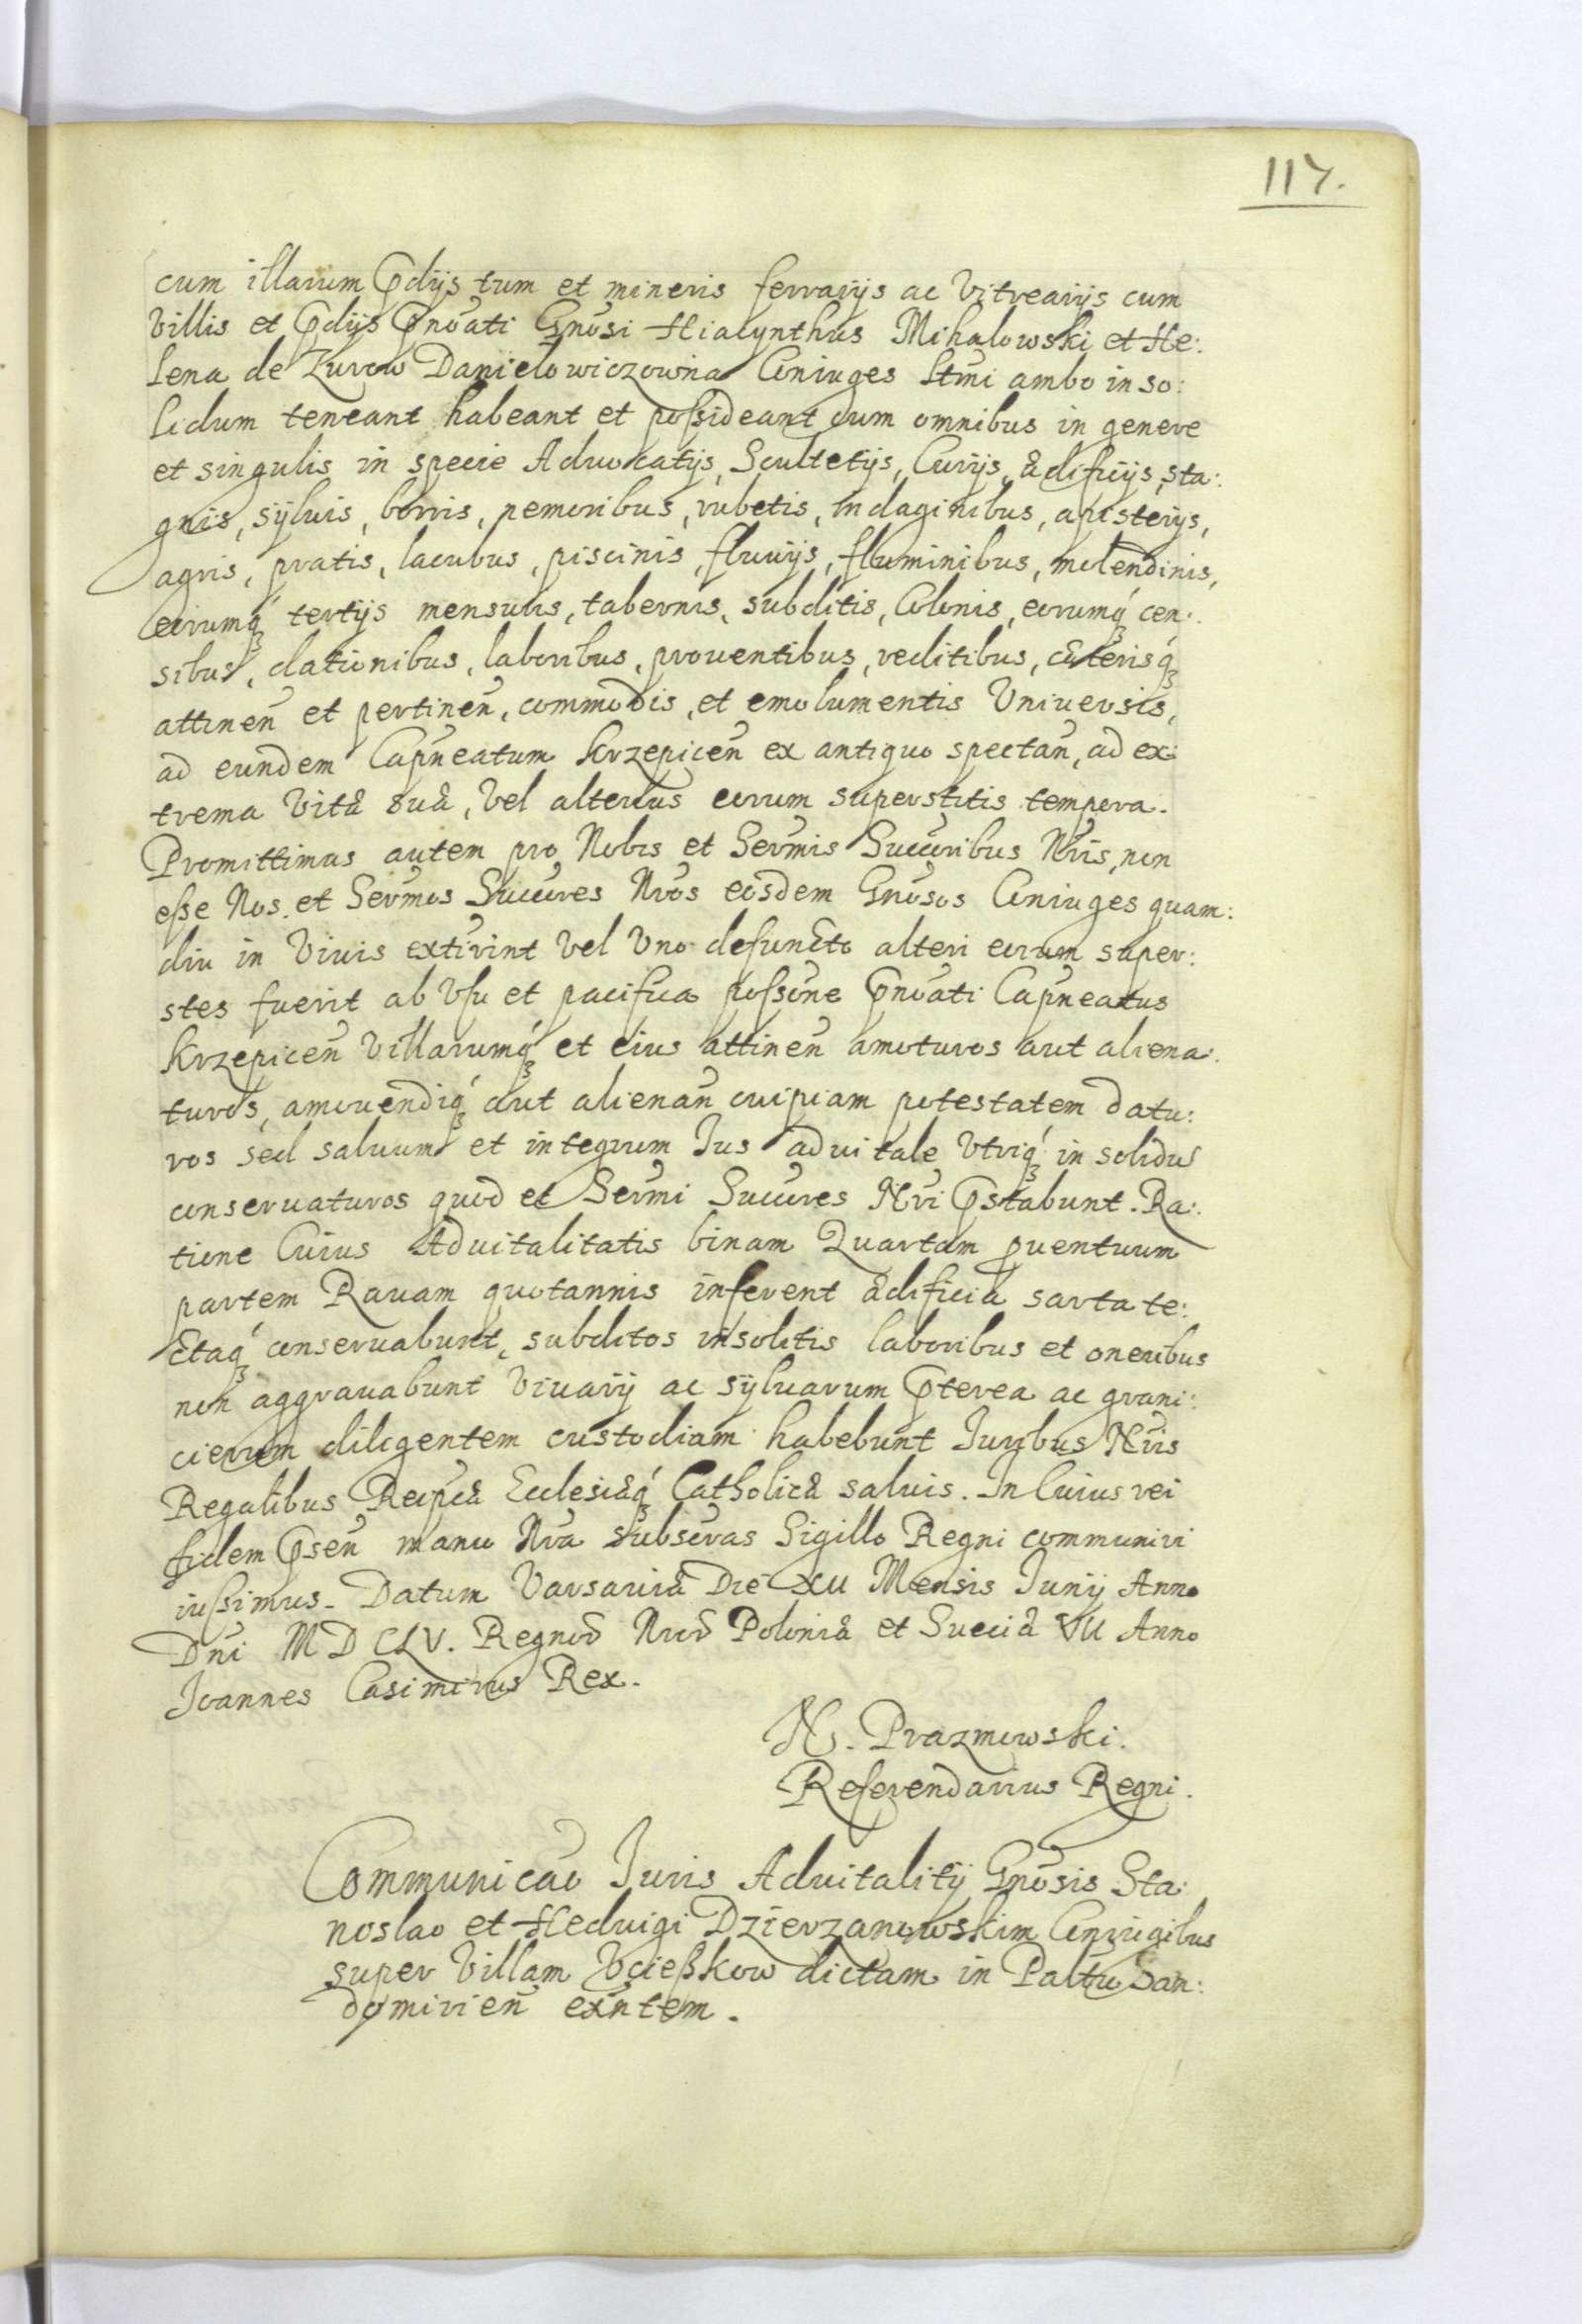 117.
cum illarum prdijs tum et mineris ferrarijs ac Vitrearijs cum
Villis et prdijs prnõati Gnõsi Hiacynthus Mihalowski et He:
lena de Zurow Danielowiczowna Coniuges Ltmi ambo in so:
lidum teneant habeant et possideant cum omnibus in genere
et singulis in specie Aduocatijs, Scultetijs, Curijs, ædificijs, sta:
gnis, syluis, borris, nemoribus, rubetis, indaginibus, apisterijs,
agris, pratis, lacubus, piscinis, fluuijs, fluminibus, molendinis,
eorumq́ʒ tertijs mensuris, tabernis, subditis, Colonis, eorumq́ʒ cen:
sibus, dationibus, laboribus, prouentibus, reditibus, cæterisq́ʒ
attinen̄ et pertinen̄, commodis, et emolumentis Vniuersis,
ad eundem Capn̄eatum Krzepicen̄ ex antiquo spectan̄, ad ex:
trema Vitæ suæ, Vel alterius eorum superstitis tempora.
Promittimus autem pro Nobis et Sermis Succoribus Nris, non
esse Nos et Sermos Succores Nros eosdem Gnosos Coniuges quam:
diu in Viuis extirint Vel Vno defuncto alteri eorum super:
stes fuerit ab Vsu et pacifica possone prnõati Capn̄eatus
Krzepicen̄ Villarumq́ʒ et eius attinen̄ amoturos aut aliena:
turos, amouendiq́ʒ aut alienan̄ cuipiam potestatem datu:
ros sed saluum et integrum Ius aduitale Vtriq́ʒ in solidu
conseruaturos quod et Sermi Succores Nri prstabunt. Ra:
tione Cuius Aduitalitatis binam Quartam puentuum
partem Rauam quotannis inferent ædificia sarta te:
ctaq́ʒ conseruabunt, subditos insolitis laboribus et oneribus
non aggrauabunt Viuarij ac syluarum prterea ac grani:
cierum diligentem custodiam habebunt Iuribus Nris
Regalibus Reipcæ Ecclesiæq́ʒ Catholicæ saluis. In Cuius rei
fidem prsen̄ manu Nra subscras Sigillo Regni communiri
iussimus. Datum Varsauiæ Die XII Mensis Iunij Anno
Dni MDCLV. Regnor̄ Nror̄ Poloniæ et Sueciæ VII Anno
Ioannes Casimirus Rex.
N. Prazmowski.
Referendarius Regni.
Communicao Iuris Aduitalitij Gnosis Sta:
noslao et Heduigi Dzierzanowskim Coniugibus
super Villam Vcieszkow dictam in Paltu San:
domirien̄ exn̄tem.